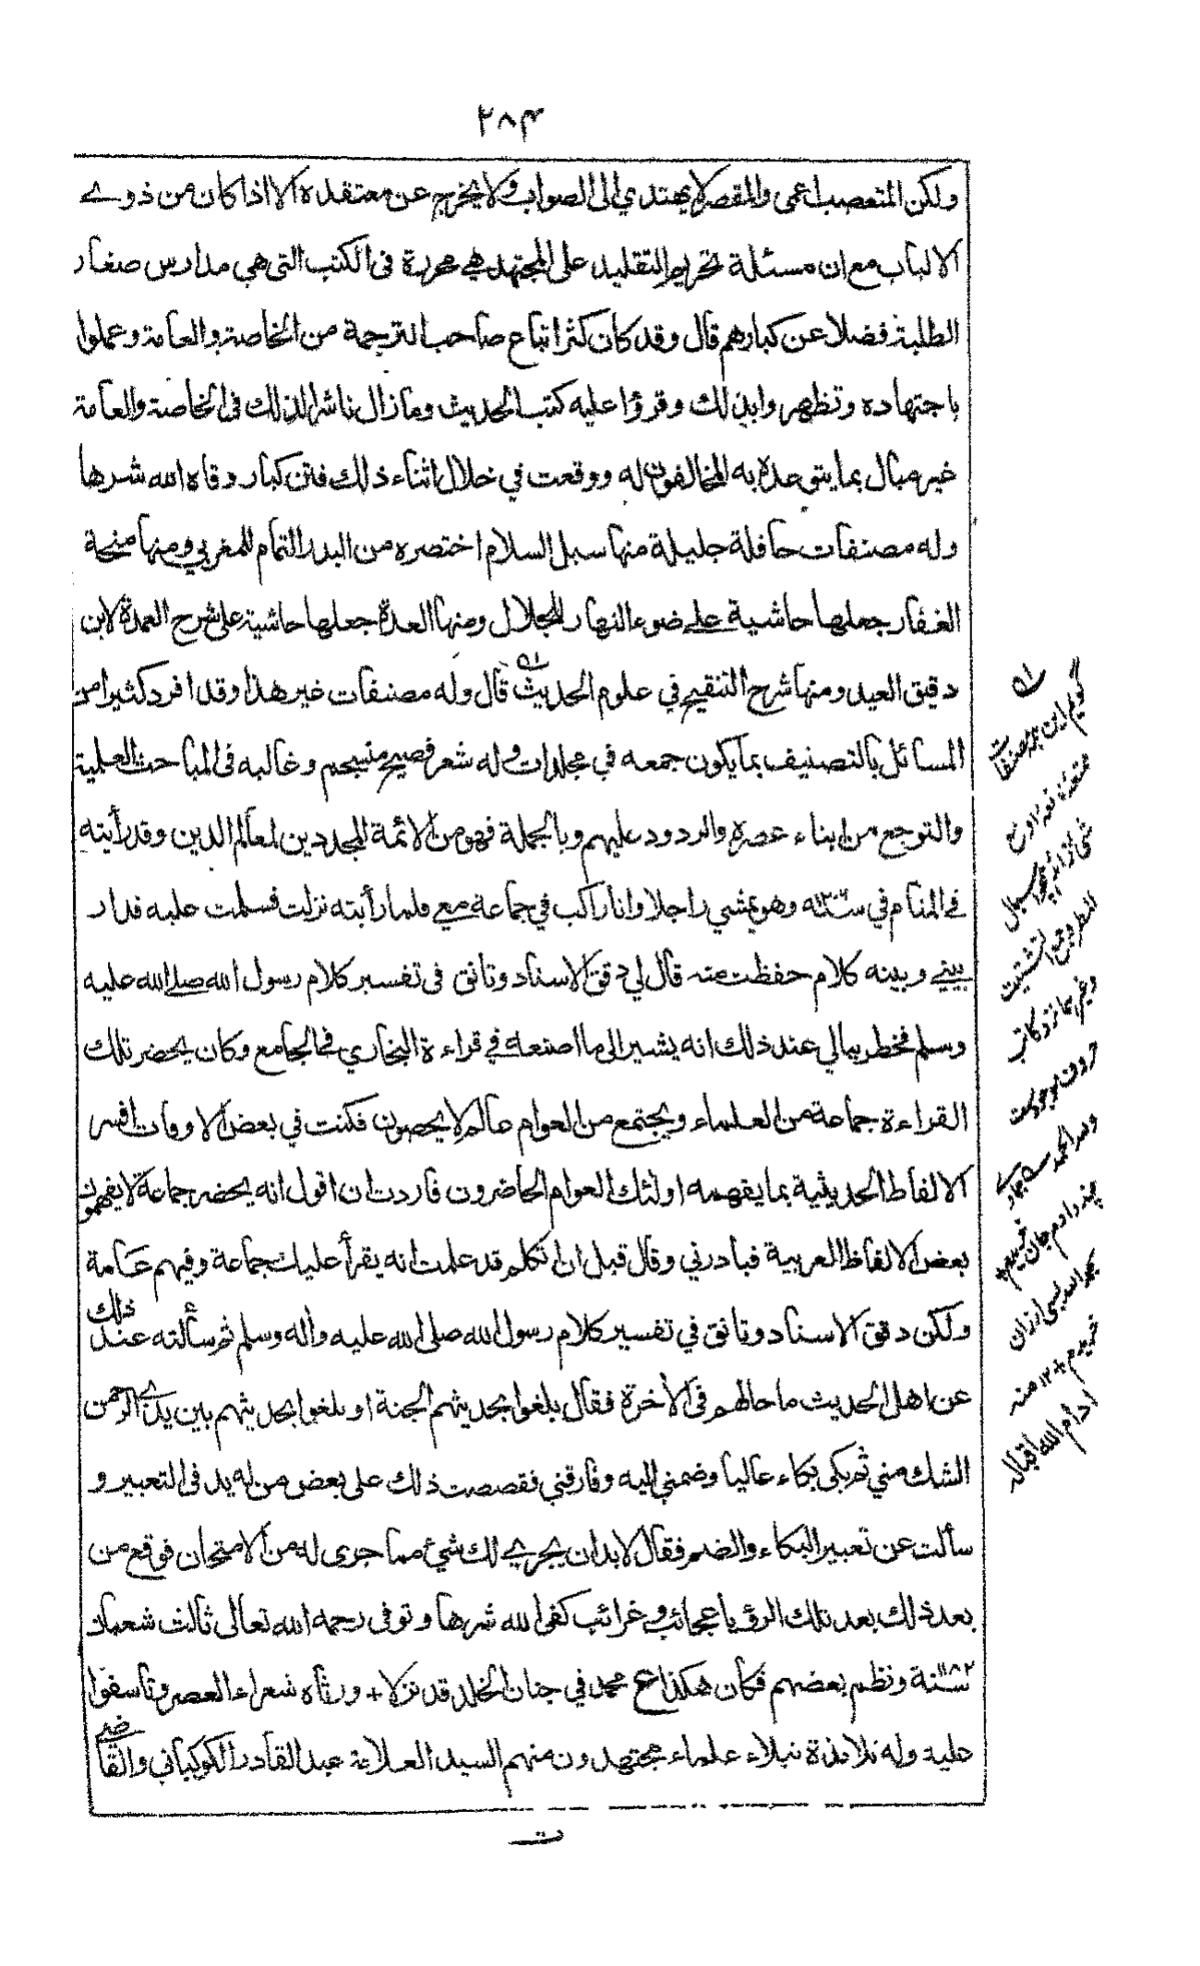 ٢٨٤
ولكن المتعصب اعمى والمقصر لا يهتدي الى الصواب ولا يخرج عن معتقده الا اذا كان من ذوے
الالباب مع ان مسئلة تحريم التقليد على المجتهد هي محررة فى الكتب التى هي مدارس صغار
الطلبة فضلا عن كبارهم قال وقد كان كثر اتباع صاحب الترجمة من الخاصة والعامة وعملوا
باجتهاده وتظهروا بذلك وقرؤا عليه كتب الحديث وما زال ناشرا لذلك فى الخاصة والعامة
غير مبال بما يتوعده به المخالفون له ووقعت في خلال اثناء ذلك فتن كبار وقاه الله شرها
وله مصنفات حافلة جليلة منها سبل السلام اختصره من البدر التمام للمغربي ومنها منحة
الغفار جعلها حاشية على ضوء النهار للجلال ومنها العدة جعلها حاشية على شرح العمدة لابن
دقيق العيد ومنها شرح التنقيح في علوم الحديث قال وله مصنفات غير هذا وقد افرد كثيرا من
المسائل بالتصنيف بما يكون جمعه في مجلدات وله شعر فصيح منسجم وغالبه فى المباحث العلمية
والتوجع من ابناء عصره والردود عليهم وبالجملة فهو من الائمة المجددين لمعالم الدين وقد رأيته
فے المنام في سنة وهو يمشي راجلا وانا راكب في جماعة معي فلما رأيته نزلت فسلمت عليه فدار
بيني وبينه كلام حفظت منه قال لي دقق الاسناد وتانق فى تفسير كلام رسول الله صلے الله عليه
وسلم فخطر ببالي عند ذلك انه يشير الى ما اصنعه في قراءة البخاري فى الجامع وكان يحضر تلك
القراءة جماعة من العلماء ويجتمع من العوام عالم لا يحصون فكنت في بعض الاوقات افسر
الالفاظ الحديثية بما يفهمه اولئك العوام الحاضرون فاردت ان اقول انه يحضر جماعة لا يفهمون
بعض الالفاظ العربية فبادرني وقال قبل ان اتكلم قد علمت انه يقرأ عليك جماعة وفيهم عامة
ولكن دقق الاسناد وتانق في تفسير كلام رسول الله صلى الله عليه وأله وسلم ثم سألته عند ذلك
عن اهل الحديث ما حالهم فى الأخرة فقال بلغوا بحديثهم الجنة او بلغوا بحديثهم بين يدي الرحمن
الشك مني ثم بكى بكاء عاليا وضمني اليه وفارقني فقصصت ذلك على بعض من له يد فى التعبير و
سألت عن تعبير البكاء والضم فقال لابد ان يجري لك شيء مما جرى له من الامتحان فوقع من
بعد ذلك بعد تلك الرؤيا عجائب وغرائب كفى الله شرها وتوفى رحمه الله تعالى ثالث شعبان
سنة ١١٨٢ ونظم بعضهم فكان هكذا ع محمد في جنان الخلد قد نزلا + ورثاه شعراء العصر وتأسفوا
عليه وله تلامذة نبلاء علماء مجتهدون منهم السيد العلامة عبد القادر الكوكباني والقاضي
ت
گويم اين همه مصنفات
وجمع الشتيت
وغيرهما نزد كاتب
حروف موجودست
ولله الحمد
چند دادم جان خريدم
بحمد الله بسى ارزان
خريدم ١٢ منه
ادام الله اقباله